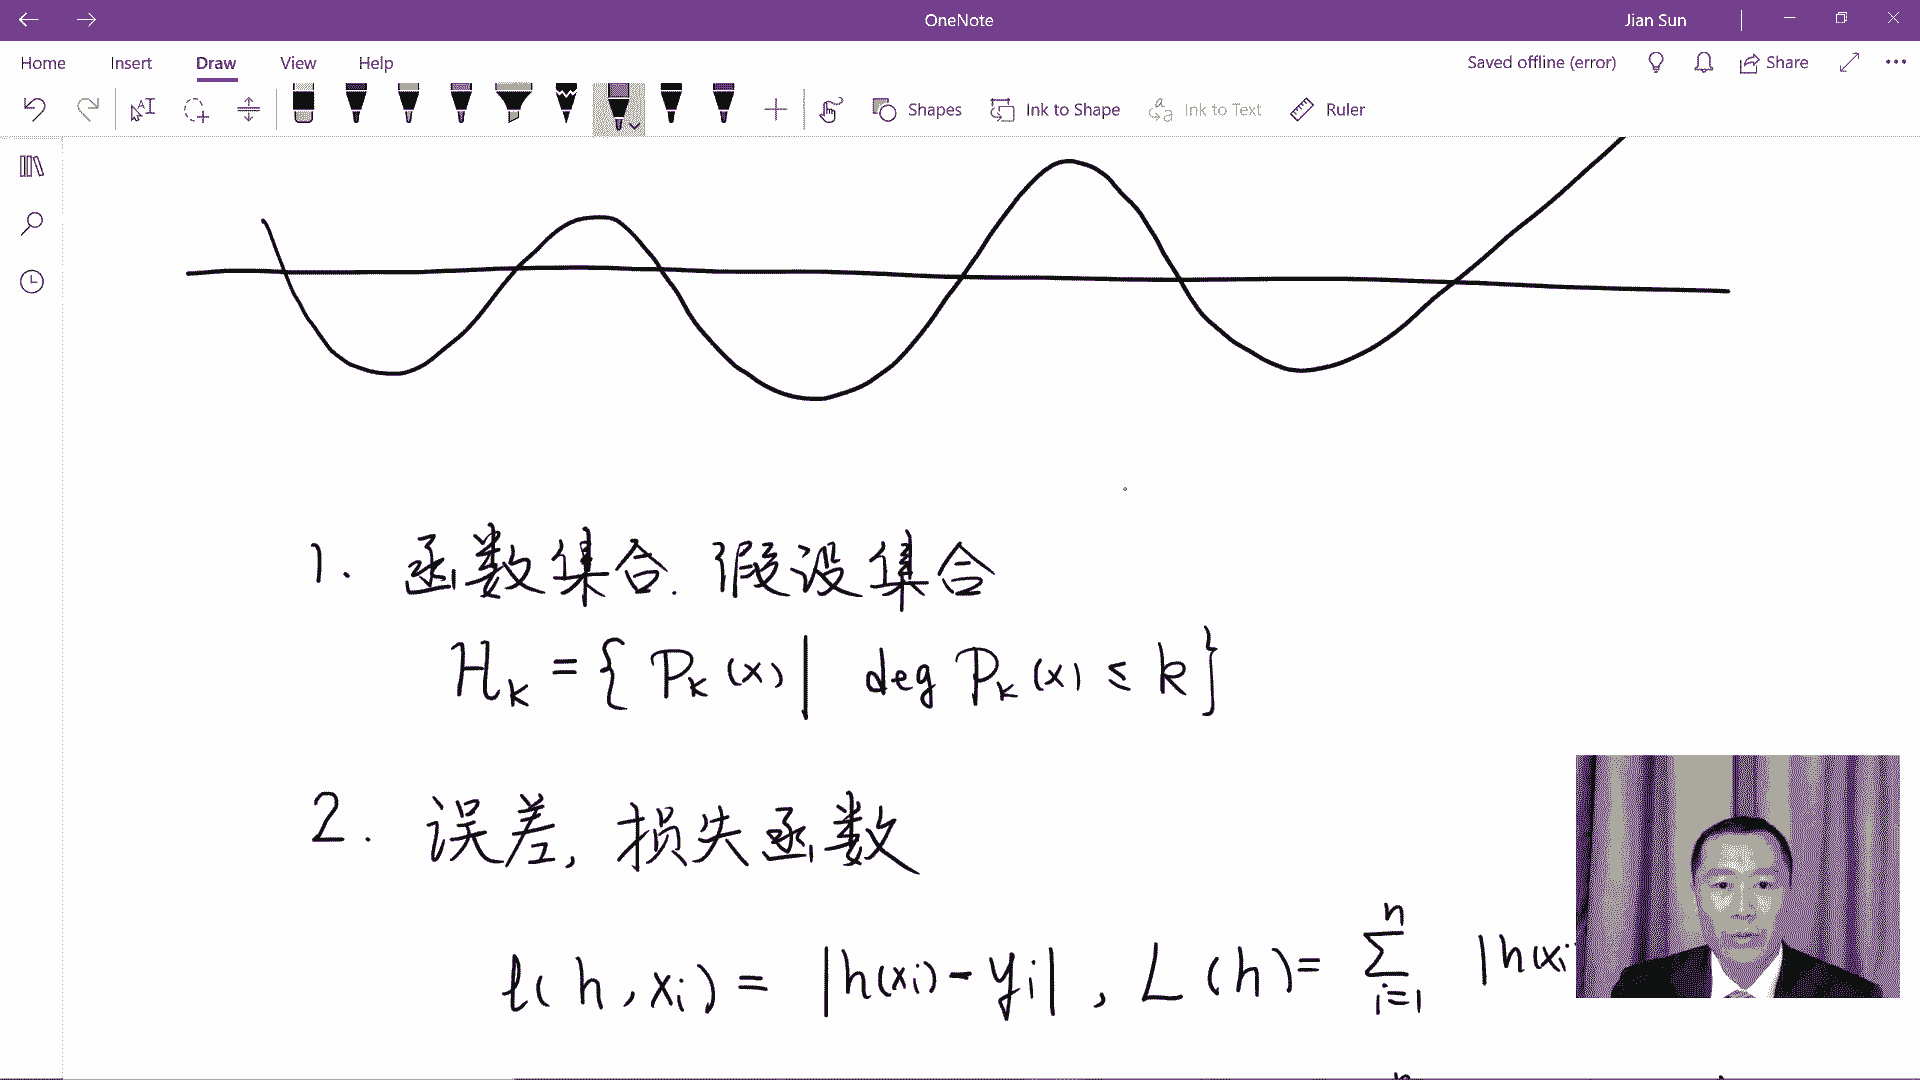 OneNote
Jian Sun
Home Insert Draw View Help
Saved offline (error) Share
Shapes Ink to Shape Ink to Text Ruler
1. 函数集合. 假设集合
H_k = { P_k (x) | deg P_k (x) ≤ k }
2. 误差, 损失函数
ℓ( h , x_i ) = |h(x_i) - y_i| , L (h) = ∑_{i=1}^{n} |h(x_i